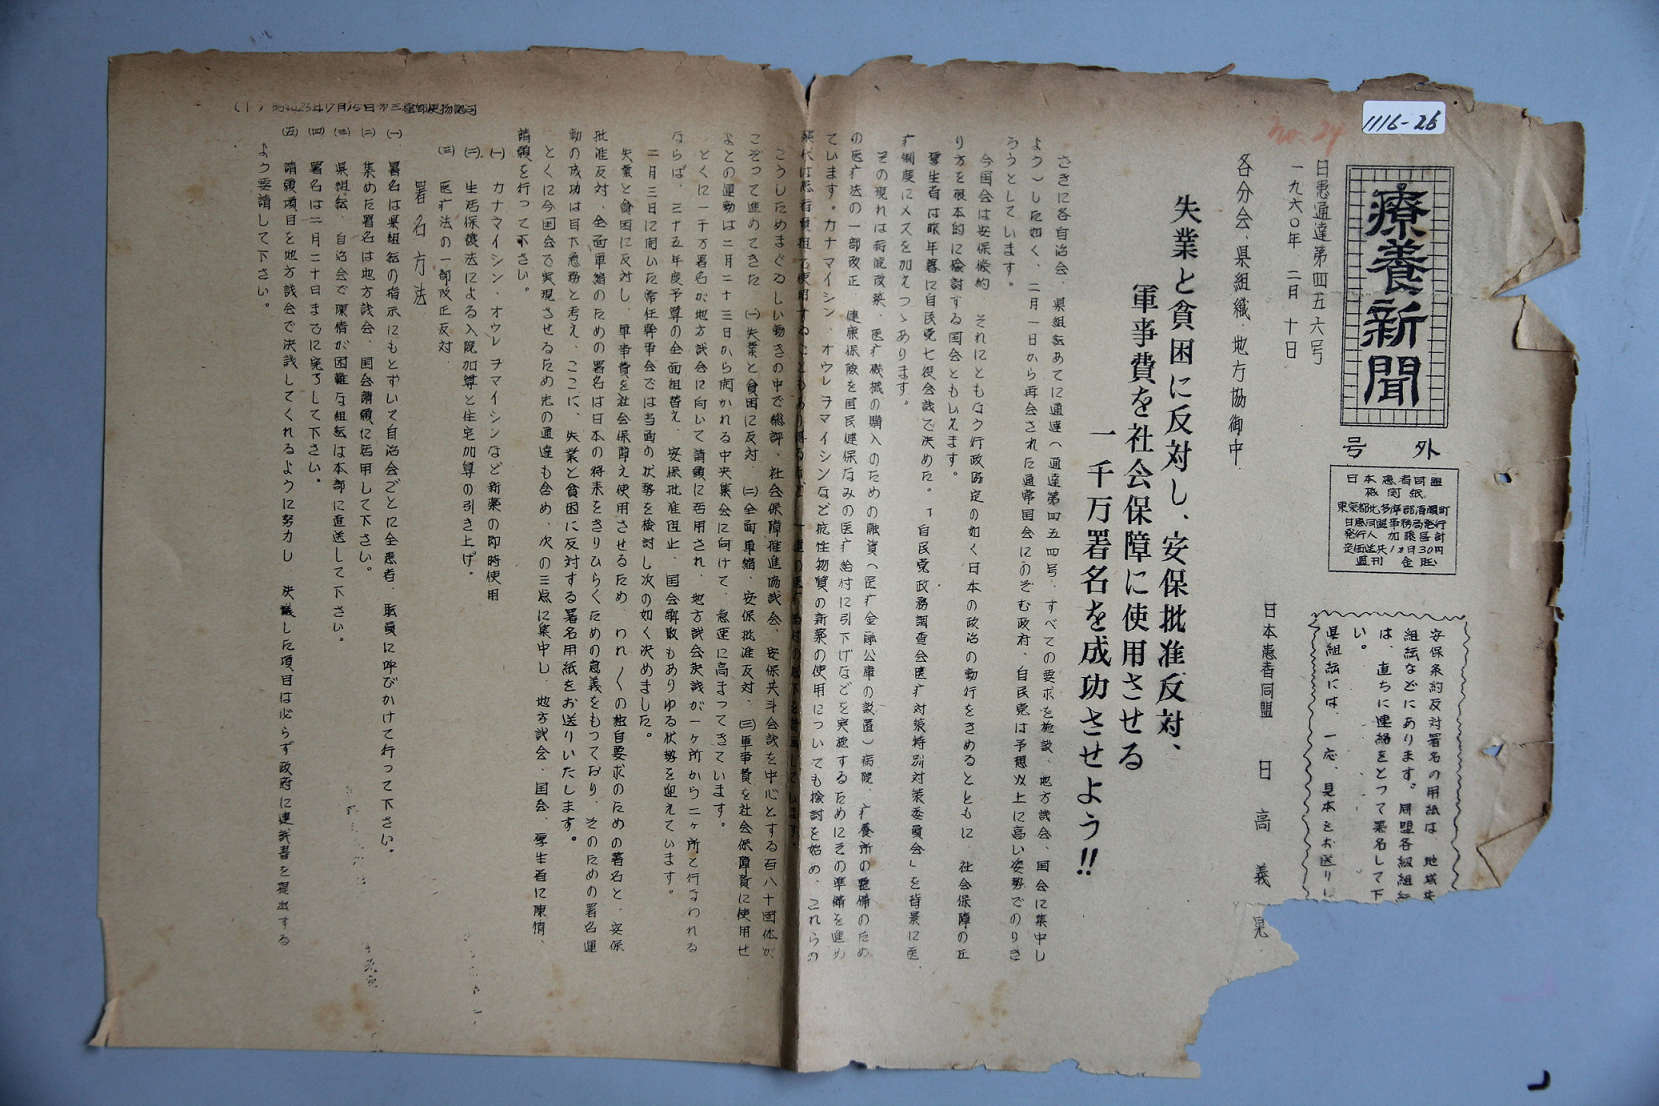 1116-26
no. 24
療養新聞
号外
日本患者同盟
機関紙
東京都北多摩郡清瀬町
日患同盟事務局発行
発行人 加藤昌討
定価送共1ヶ月30円
週刊
安保条約反対署名の用紙は、地域共
組織などにあります。同盟各級組
は、直ちに連絡をとって署名して下
い。
県組織には、一応、見本をお送りし
日患通達第四五六号
一九六〇年 二月 十日
各分会・県組織・地方協御中
日本患者同盟 日高 義晃
失業と貧困に反対し、安保批准反対、
軍事費を社会保障に使用させる
一千万署名を成功させよう!!
さきに各自治会、県組織あてに通達(通達第四五四号、すべての要求を施設、地方議会、国会に集中し
よう)した如く、二月一日から再会された通常国会にのぞむ政府、自民党は予想以上に高い姿勢でのりき
ろうとしています。
今国会は安保條約、それにともなう行政協定の如く日本の政治の動行をきめるとともに、社会保障の在
り方を根本的に検討する国会ともいえます。
厚生省は昨年暮に自民党七役会議で決めた。「自民党政務調査会医疗対策特別対策委員会」を背景に医
疗制度にメスを加えつゝあります。
その現れは病院改築、医疗機械の購入のための融資(医疗金融公庫の設置)病院、疗養所の整備のため
の医疗法の一部改正、健康保険を国民健保なみの医疗給付に引下げなどを実施するためにその準備を進め
ています。カナマイシン、オウレヲマイシンなど抗性物質の新薬の使用についても検討を始め、これらの
こうしためまぐるしい動きの中で総評、社会保障推進協議会、安保共斗会議を中心とする百八十団体が
こぞって進めてきた (一)失業と貧困に反対 (二)全面軍縮、安保批准反対、(三)軍事費を社会保障費に使用せ
よとの運動は二月二十三日から開かれる中央集会に向けて、急速に高まってきています。
とくに一千万署名が地方議会に向いて請願に活用され、地方議会決議が一ヶ所から二ヶ所と行なわれる
ならば、三十五年度予算の全面組替え、安保批准阻止、国会解散もありゆる状勢を迎えています。
二月三日に開いた常任幹事会では当面の状勢を検討し次の如く決めました。
失業と貧困に反対し、軍事費を社会保障え使用させるため、われ〱の独自要求のための署名と、安保
批准反対、全面軍縮のための署名は日本の将来をきりひらくための意義をもっており、そのための署名運
動の成功は目下急務と考え、ここに、失業と貧困に反対する署名用紙をお送りいたします。
とくに今国会で実現させるため先の通達も含め、次の三点に集中し、地方議会、国会、厚生省に陳情、
請願を行って下さい。
(一) カナマイシン・オウレヲマイシンなど新薬の即時使用
(二) 生活保護法による入院加算と住宅加算の引き上げ。
(三) 医疗法の一部改正反対
署名方法
(一) 署名は県組織の指示にもとずいて自治会ごとに全患者、職員に呼びかけて行って下さい。
(二) 集めた署名は地方議会、国会請願に活用して下さい。
(三) 県組織、自治会で陳情が困難な組織は本部に直送して下さい。
(四) 署名は二月二十日までに完了して下さい。
(五) 請願項目を地方議会で決議してくれるように努力し、決議した項目は必らず政府に建議書を提出する
よう要請して下さい。